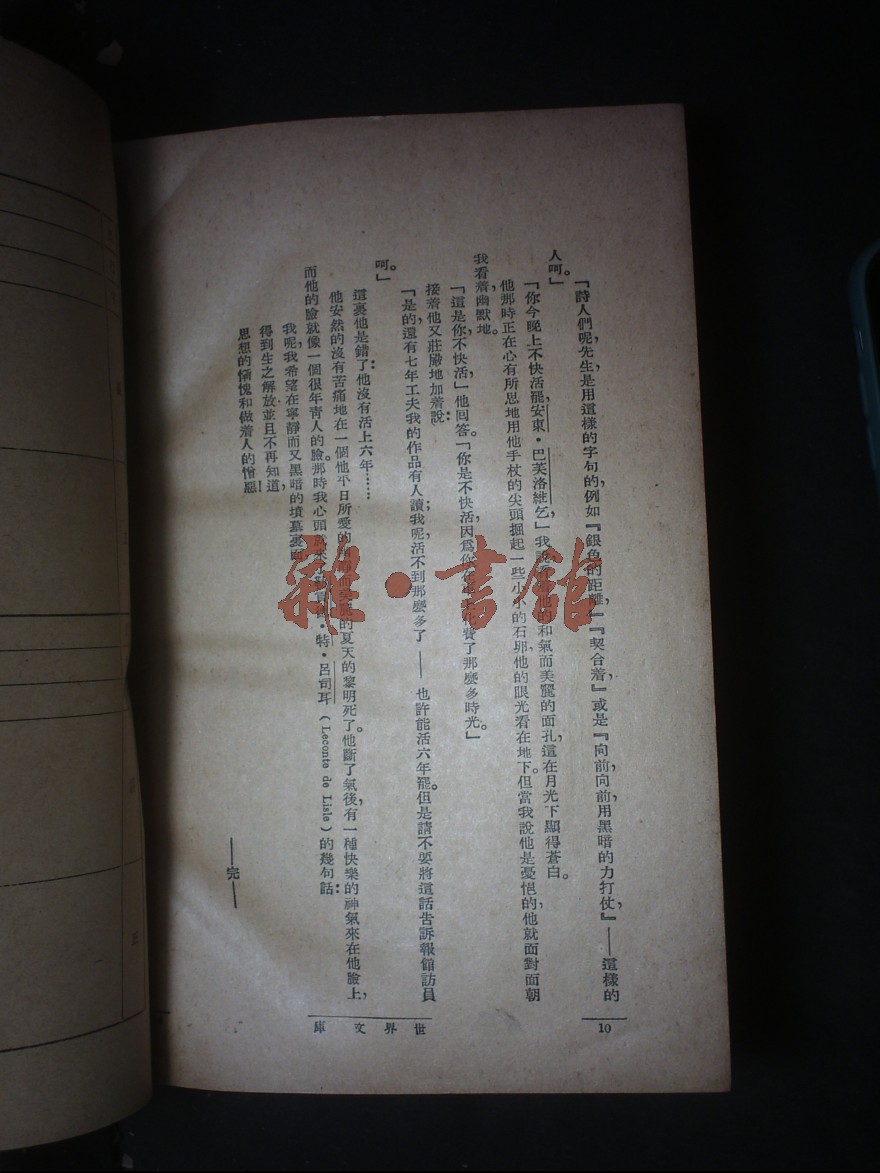 「詩人們呢,先生,是用這樣的字句的,例如『銀色的距離,』『契合着,』或是『向前,向前,用黑暗的力打仗,』——這樣的
人呵。」
「你今晚上不快活罷,安東・巴芙洛維乞,」我說,看着他的和氣而美麗的面孔,這在月光下顯得蒼白。
他那時正在心有所思地用他手杖的尖頭掘起一些小小的石卵,他的眼光看在地下。但當我說他是憂悒的,他就面對面朝
我看着,幽默地。
「這是你不快活,」他回答。「你是不快活,因爲你在車上花費了那麼多時光。」
接着他又莊嚴地加着說:
「是的,還有七年工夫我的作品有人讀;我呢,活不到那麼多了——也許能活六年罷。但是請不要將這話告訴報館訪員
呵。」
這裏他是錯了:他沒有活上六年……
他安然的沒有苦痛地在一個他平日所愛的 的夏天的黎明死了。他斷了氣後,有一種快樂的神氣來在他臉上,
而他的臉就像一個很年青人的臉。那時我心頭就來 特・呂司耳(Leconte de Lisle)的幾句話:
我呢,我希望在寧靜而又黑暗的墳墓裏面
得到生之解放,並且不再知道,
思想的慚愧和做着人的憎惡!
——完——
世界文庫
10
雜・書館